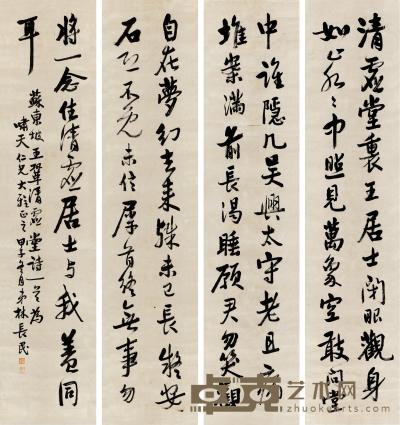 清虛堂裏王居士閉眼觀身
如止水〻中照見萬象空敢問堂
中誰隱几吳興太守老且病
堆案滿前長渴睡願君勿笑
自在夢幻去來殊未已長疑安
石恐不免未信犀首終無事勿
將一念住清虛居士與我蓋同
耳
蘇東坡王鞏清虛堂詩一首為
嘯天仁兄大雅正之 甲子冬月弟林長民
卓克艺术网
zhuokearts.com